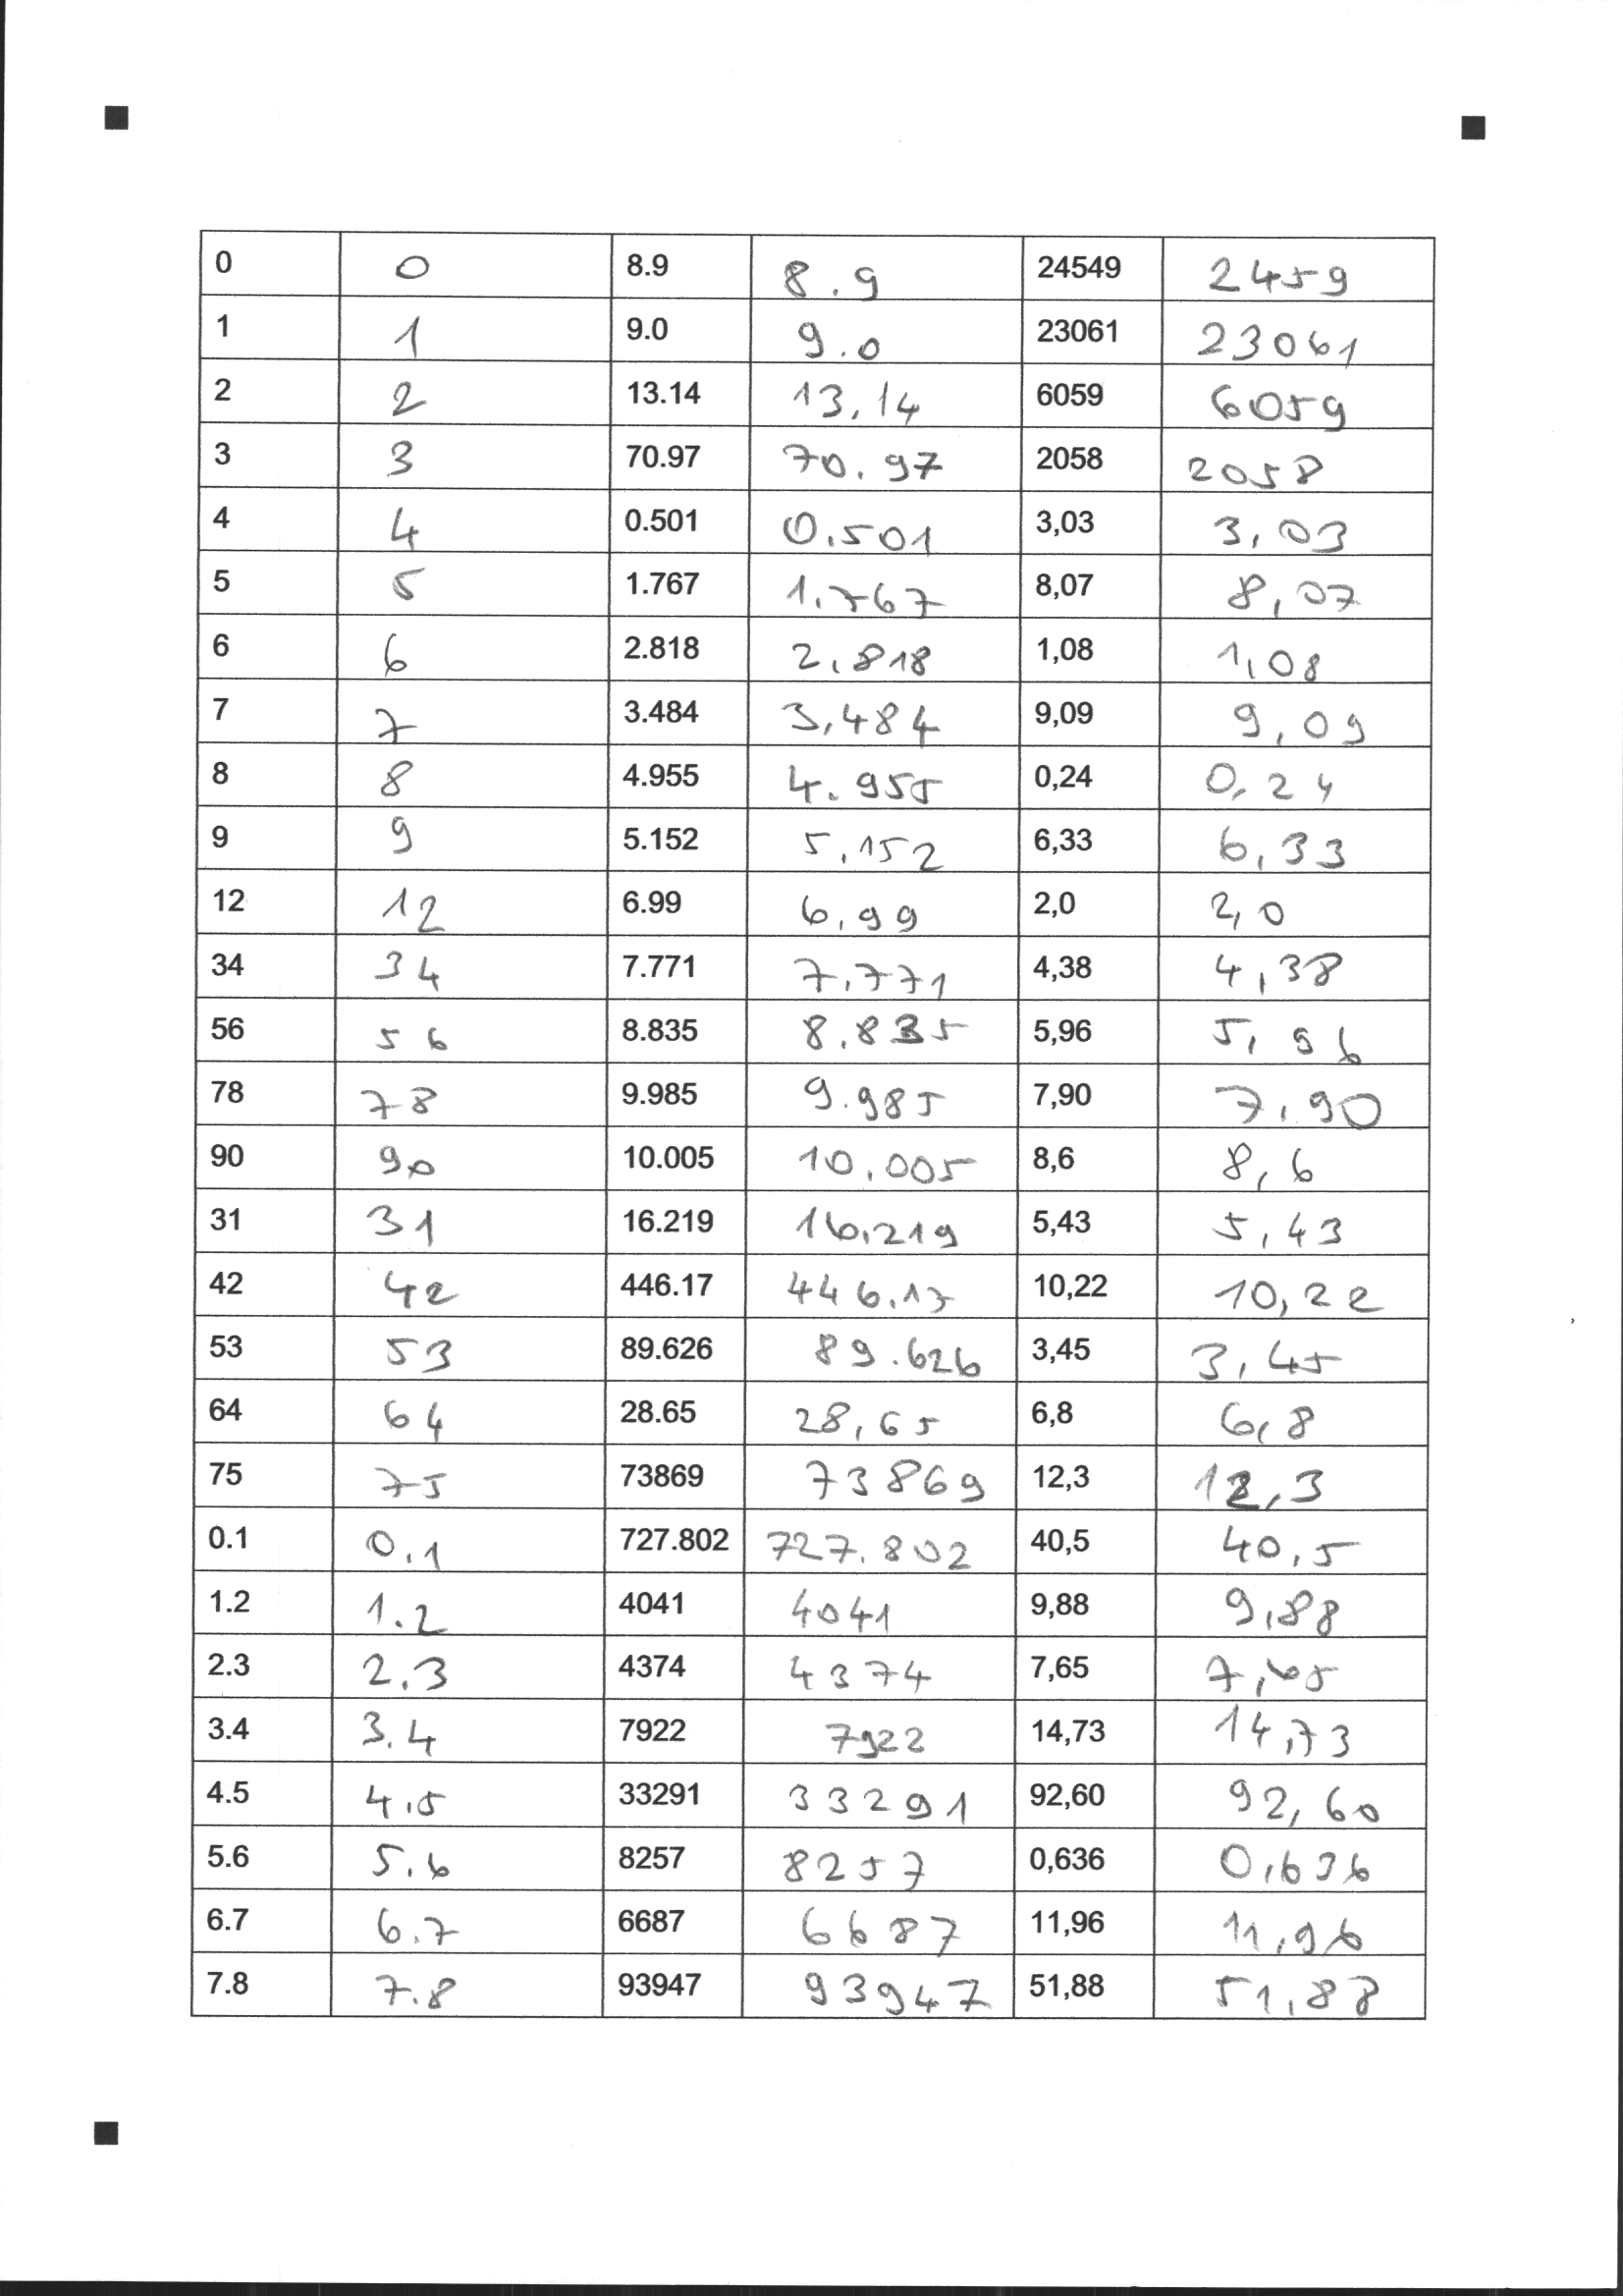 0 0 8.9 8.9 24549 2459
1 1 9.0 9.0 23061 23061
2 2 13.14 13,14 6059 6059
3 3 70.97 70.97 2058 2058
4 4 0.501 0.501 3,03 3,03
5 5 1.767 1.767 8,07 8,07
6 6 2.818 2.818 1,08 1,08
7 7 3.484 3,484 9,09 9,09
8 8 4.955 4.955 0,24 0,24
9 9 5.152 5,152 6,33 6,33
12 12 6.99 6,99 2,0 2,0
34 34 7.771 7,771 4,38 4,38
56 56 8.835 8.835 5,96 5,96
78 78 9.985 9.985 7,90 7,90
90 90 10.005 10.005 8,6 8,6
31 31 16.219 16.219 5,43 5,43
42 42 446.17 446.17 10,22 10,22
53 53 89.626 89.626 3,45 3,45
64 64 28.65 28,65 6,8 6,8
75 75 73869 73869 12,3 12,3
0.1 0.1 727.802 727.802 40,5 40,5
1.2 1.2 4041 4041 9,88 9,88
2.3 2.3 4374 4374 7,65 7,65
3.4 3.4 7922 7922 14,73 14,73
4.5 4.5 33291 33291 92,60 92,60
5.6 5.6 8257 8257 0,636 0,636
6.7 6.7 6687 6687 11,96 11,96
7.8 7.8 93947 93947 51,88 51,88